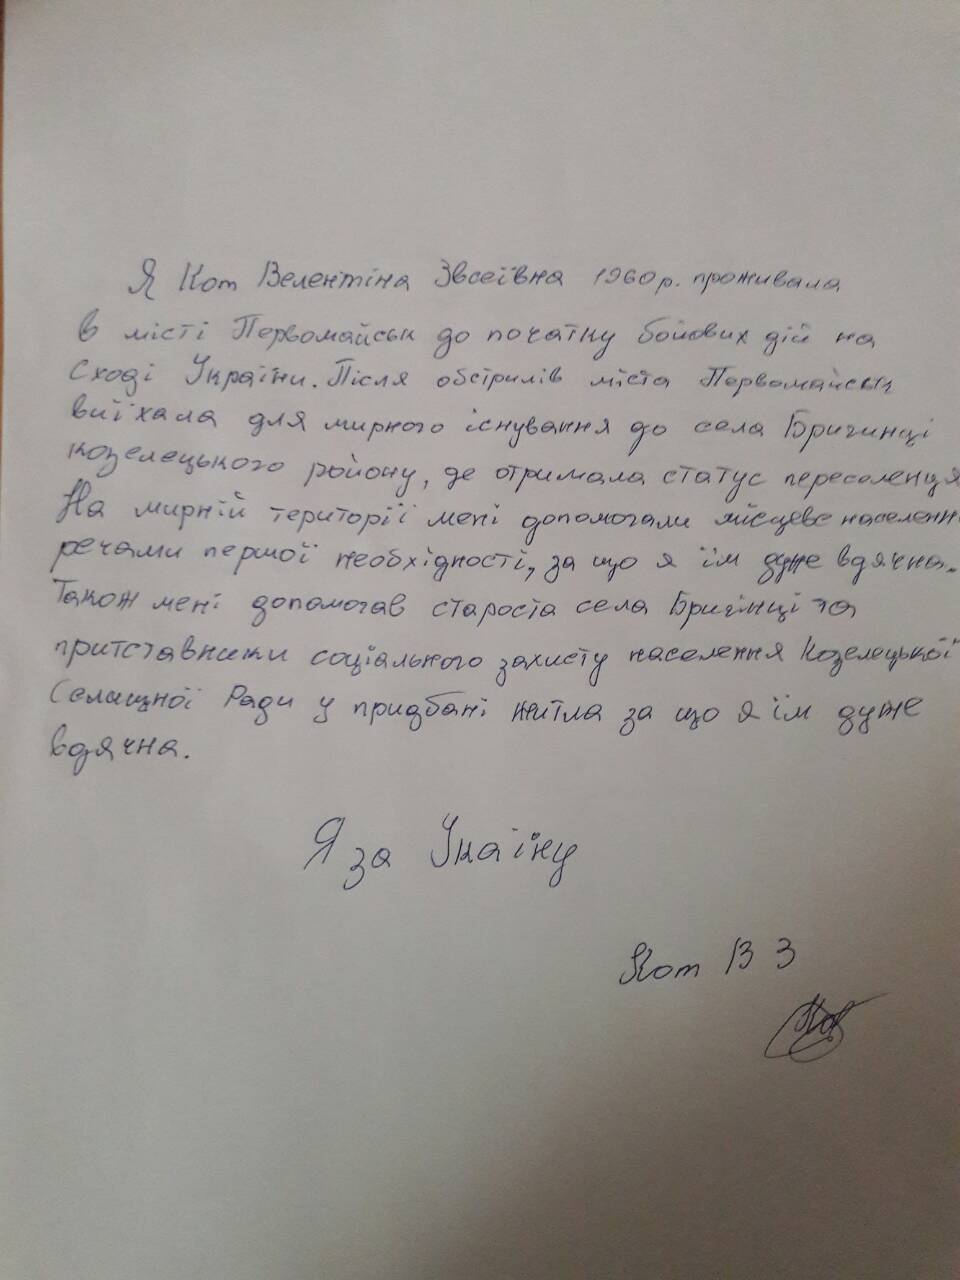 Я Кот Велентіна Звсеївна 1960р. проживала
в місті Первомайськ до початку бойових дій на
Сході України. Після обстрилів міста Первомайськ
виїхала для мирного існування до села Бригинці
козелецького району, де отримала статус переселенця
На мирній території мені допомогали місцеве населенн
речами першої необхідності, за що я їм дуже вдячна.
Також мені допомогав староста села Бригінці та
притставники соціального захисту населення Козелецької
Селищної Ради у придбані житла за що я їм дуже
вдячна.
Я за Укаїну
Кот В З